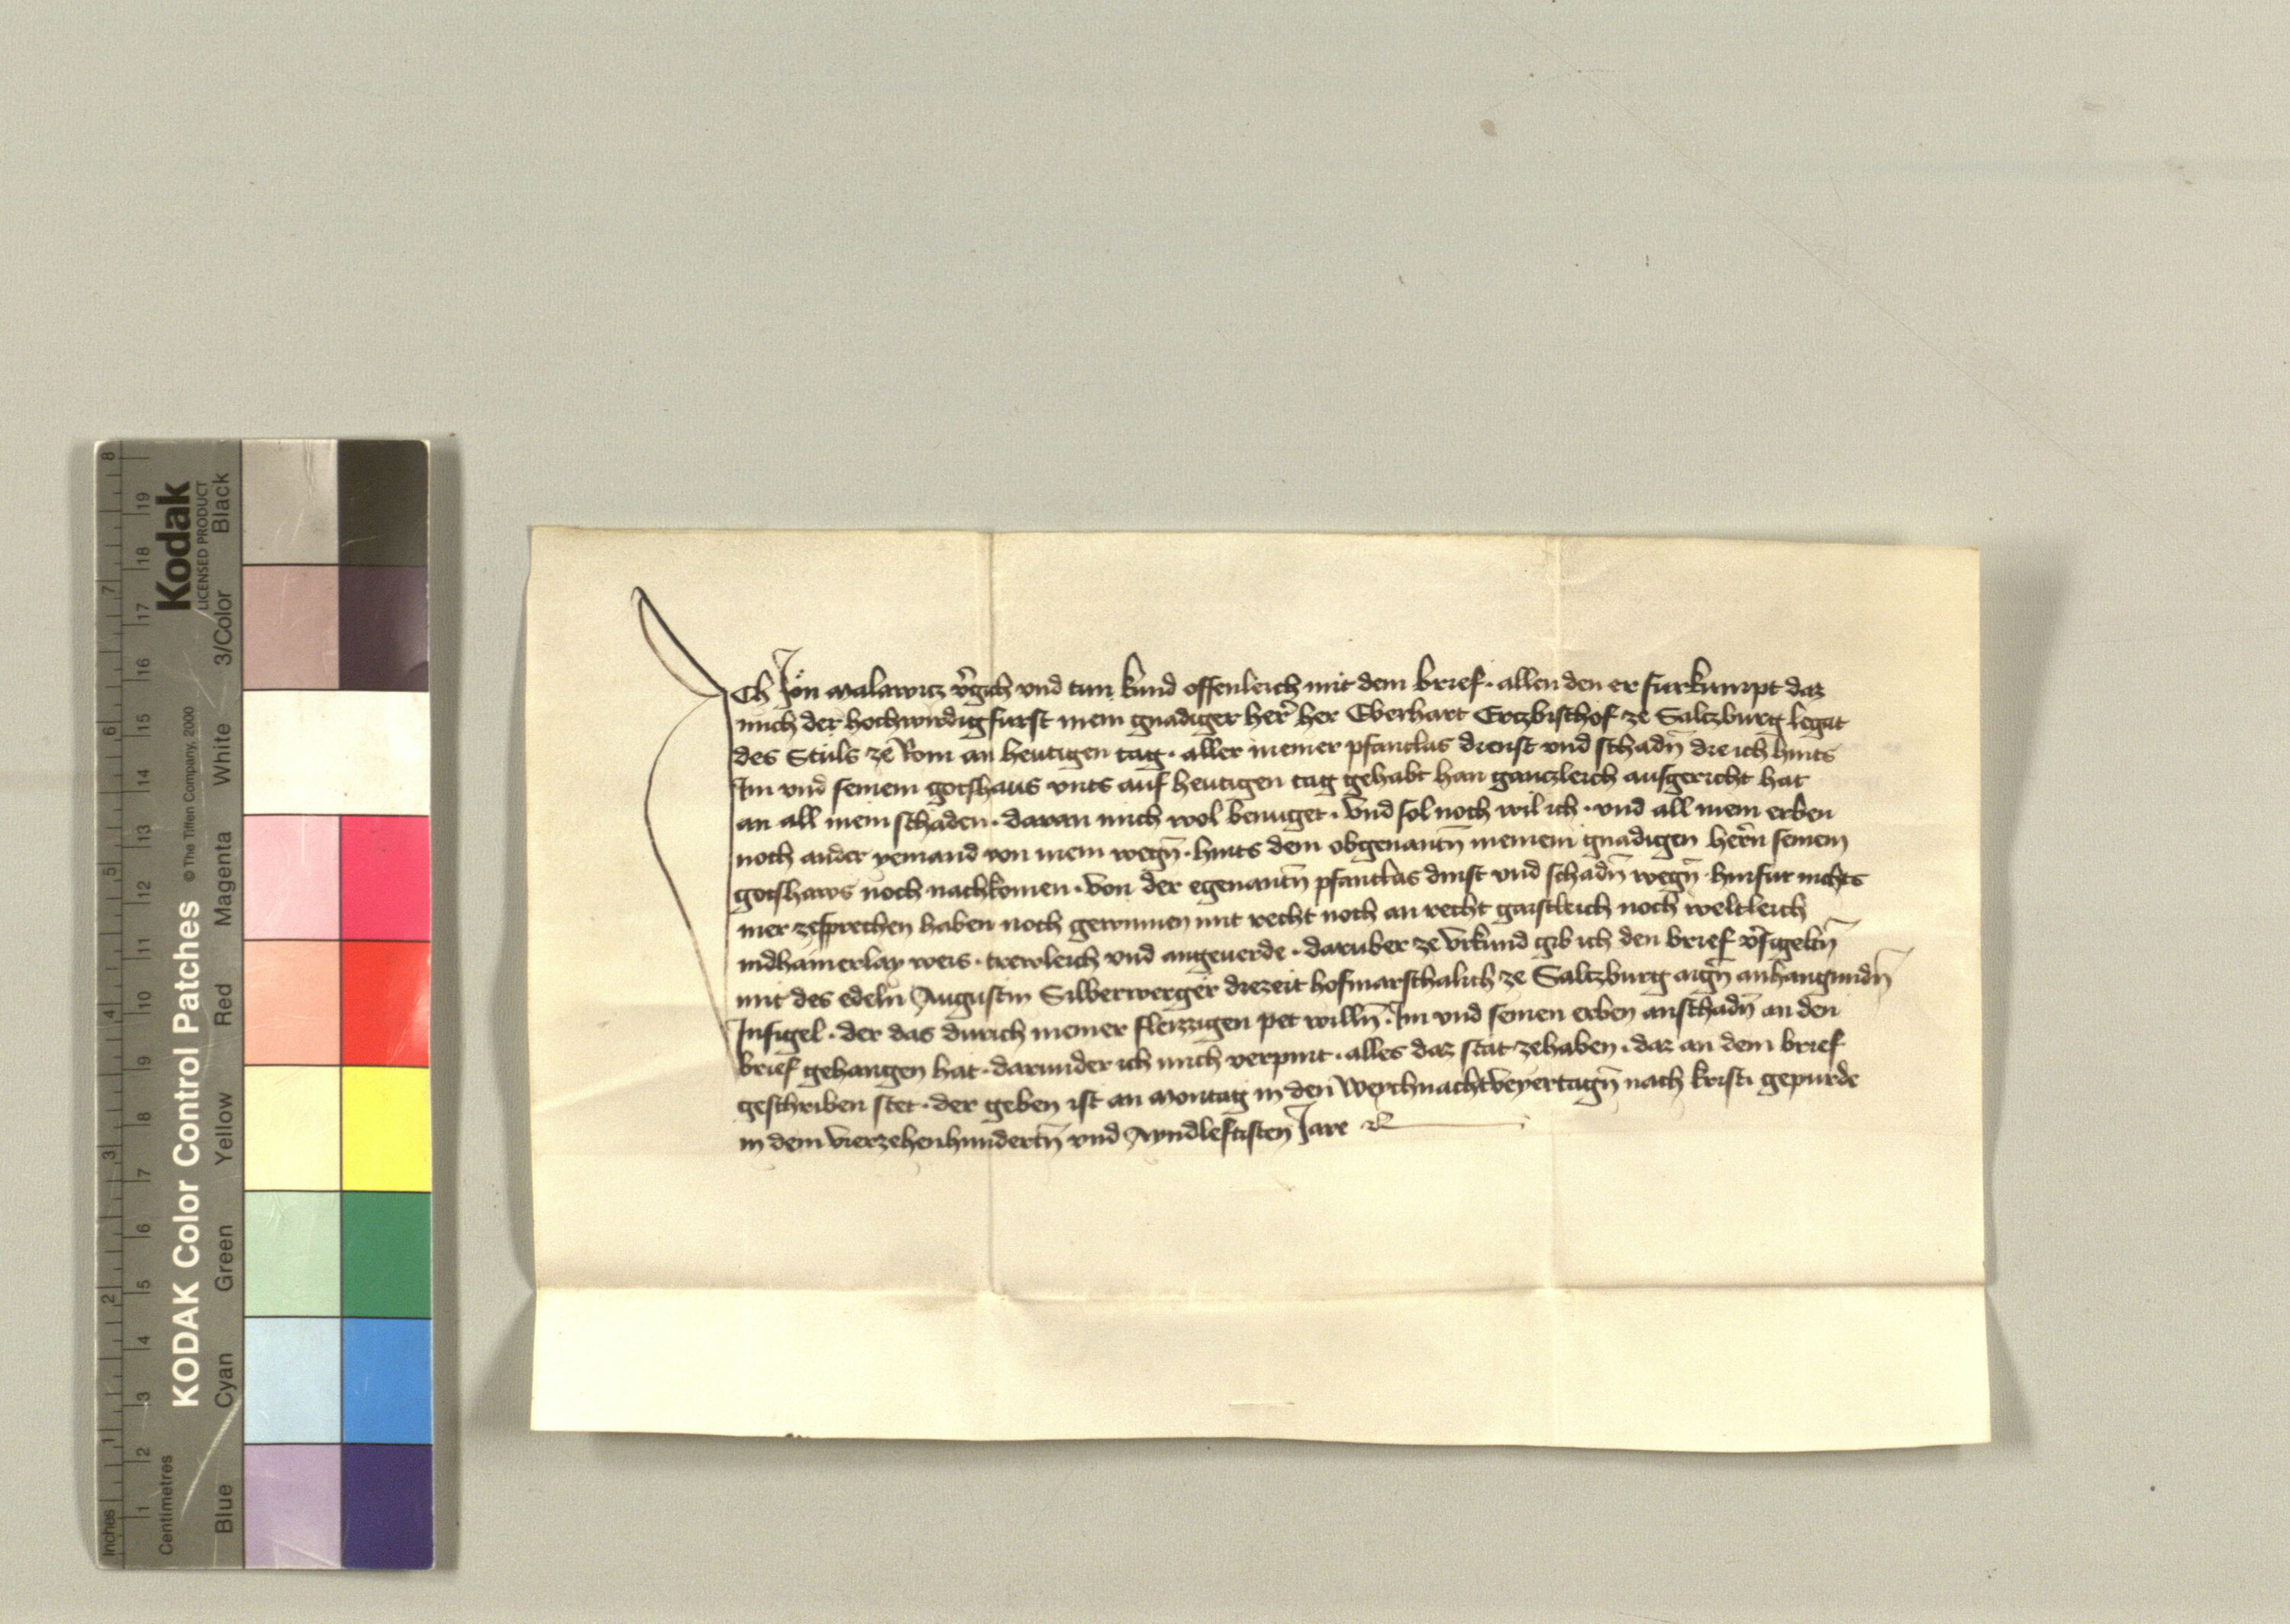 Ich Jön Malawicz v̄gich vnd tun kund offenleich mit dem brief · allen den er furkumpt daz
mich der hochwirdig furst mein gnädiger her̄ her Eberhart Ertzbischof ze Saltzburg legat
des Stuls ze Rom an heutigen tag · aller meiner pfantlas dienst vnd schadn̄ die ich hincz
Im vnd seinem gotshaus vncz auf heutigen tag gehabt han gancźleich ausgericht hat
an all mein schaden · daran mich wol benuget · Vnd sol noch wil ich · vnd all mein erben
noch ander yemand von mein wegn̄ · hincz dem obgenantn̄ meinem gnädigen her̄n seinem
gotshaws noch nachkomen · Von der egenantn̄ pfantlas dinst vnd schadn̄ wegn̄ · hinfür nichts
mer zesprechen haben noch gewinnen mit recht noch an recht gaistleich noch weltleich
indhainerlay weis · trewleich vnd angeuerde · darüber ze Vrkund gib ich den brief v̄sigeltn̄
mit des edeln Augustin Silberwerger diezeit hofmarschalich ze Saltzburg aign̄ anhangundn̄
Insigel · der das durich meiner fleizzigen pet willn̄ · Im vnd seinen erben anschadn̄ an den
brief gehangen hat · darunder ich mich verpint · alles daz stät zehaben · daz an dem brief
geschriben stet · der geben ist an Montag in den Weichnachtveyertagn̄ nach kristi gepurde
in dem Vierzehenhundertn̄ vnd Ayndleftisten Jare &c
Kodak
LICENSED PRODUCT
KODAK Color Control Patches
© The Tiffen Company, 2000
Blue Cyan Green Yellow Red Magenta White 3/Color Black
Inches 1 2 3 4 5 6 7 8
Centimetres 1 2 3 4 5 6 7 8 9 10 11 12 13 14 15 16 17 18 19